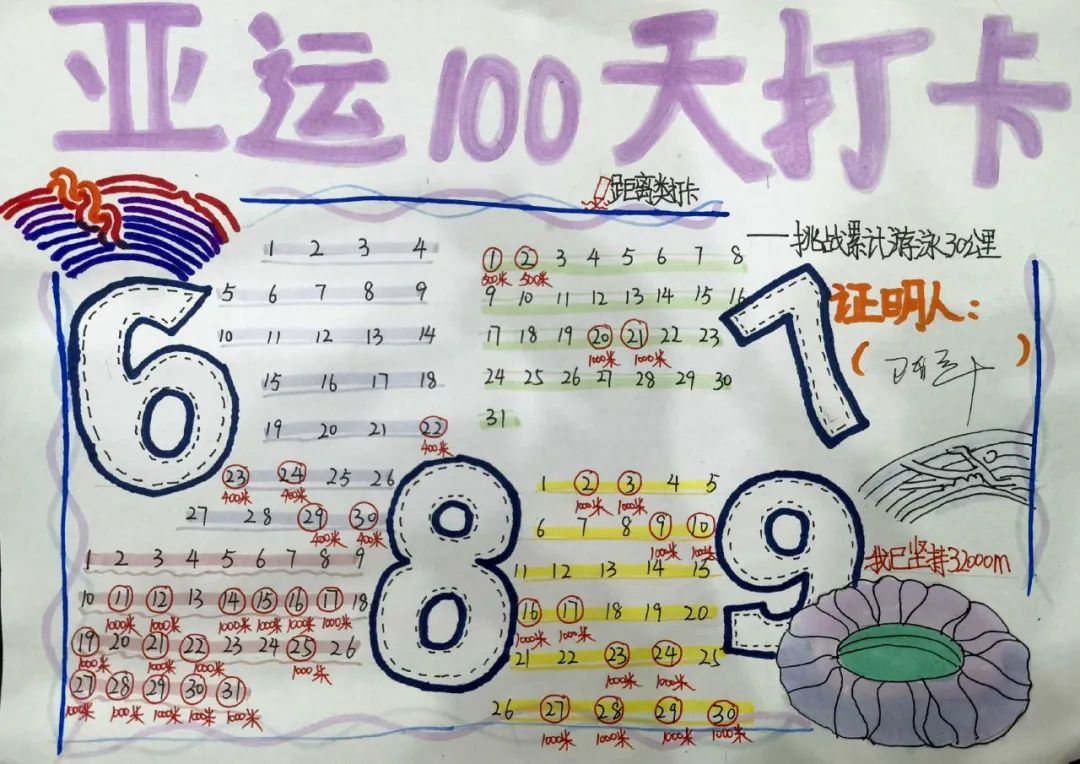 亚运100天打卡
距离类打卡
——挑战累计游泳30公里
证明人:
( )
6
1 2 3 4
5 6 7 8 9
10 11 12 13 14
15 16 17 18
19 20 21 22
400米
23 24 25 26
400米 400米
27 28 29 30
400米 400米
7
1 2 3 4 5 6 7 8
500米 500米
9 10 11 12 13 14 15 16
17 18 19 20 21 22 23
1000米 1000米
24 25 26 27 28 29 30
31
8
1 2 3 4 5 6 7 8 9
10 11 12 13 14 15 16 17 18
1000米 1000米 1000米 1000米 1000米 1000米
19 20 21 22 23 24 25 26
1000米 1000米 1000米 1000米
27 28 29 30 31
1000米 1000米 1000米 1000米 1000米
9
1 2 3 4 5
1000米 1000米
6 7 8 9 10
1000米 1000米
11 12 13 14 15
16 17 18 19 20
1000米 1000米
21 22 23 24 25
1000米 1000米
26 27 28 29 30
1000米 1000米 1000米 1000米
我已坚持32000m